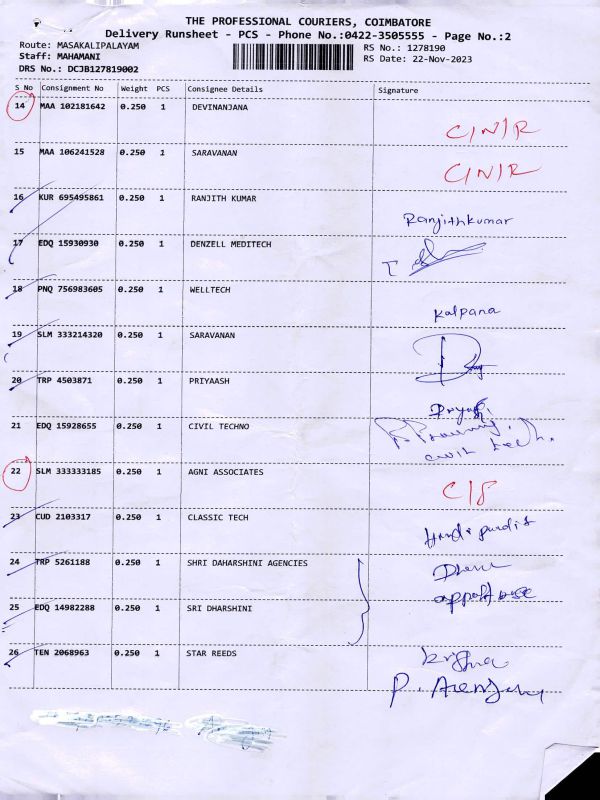 THE PROFESSIONAL COURIERS, COIMBATORE
Delivery Runsheet - PCS - Phone No.:0422-3505555 - Page No.:2
Route: MASAKALIPALAYAM RS No.: 1278190
Staff: MAHAMANI RS Date: 22-Nov-2023
DRS No.: DCJB127819002
S No Consignment No Weight PCS Consignee Details Signature
14 MAA 102181642 0.250 1 DEVINANJANA
C/N/R
15 MAA 106241528 0.250 1 SARAVANAN
C/N/R
16 KUR 695495861 0.250 1 RANJITH KUMAR
Ranjithkumar
17 EDQ 15930930 0.250 1 DENZELL MEDITECH
18 PNQ 756983605 0.250 1 WELLTECH
Kalpana
19 SLM 333214320 0.250 1 SARAVANAN
20 TRP 4503871 0.250 1 PRIYAASH
21 EDQ 15928655 0.250 1 CIVIL TECHNO
civil tech.
22 SLM 333333185 0.250 1 AGNI ASSOCIATES
23 CUD 2103317 0.250 1 CLASSIC TECH
24 TRP 5261188 0.250 1 SHRI DAHARSHINI AGENCIES
25 EDQ 14982288 0.250 1 SRI DHARSHINI
26 TEN 2068963 0.250 1 STAR REEDS
Krishna